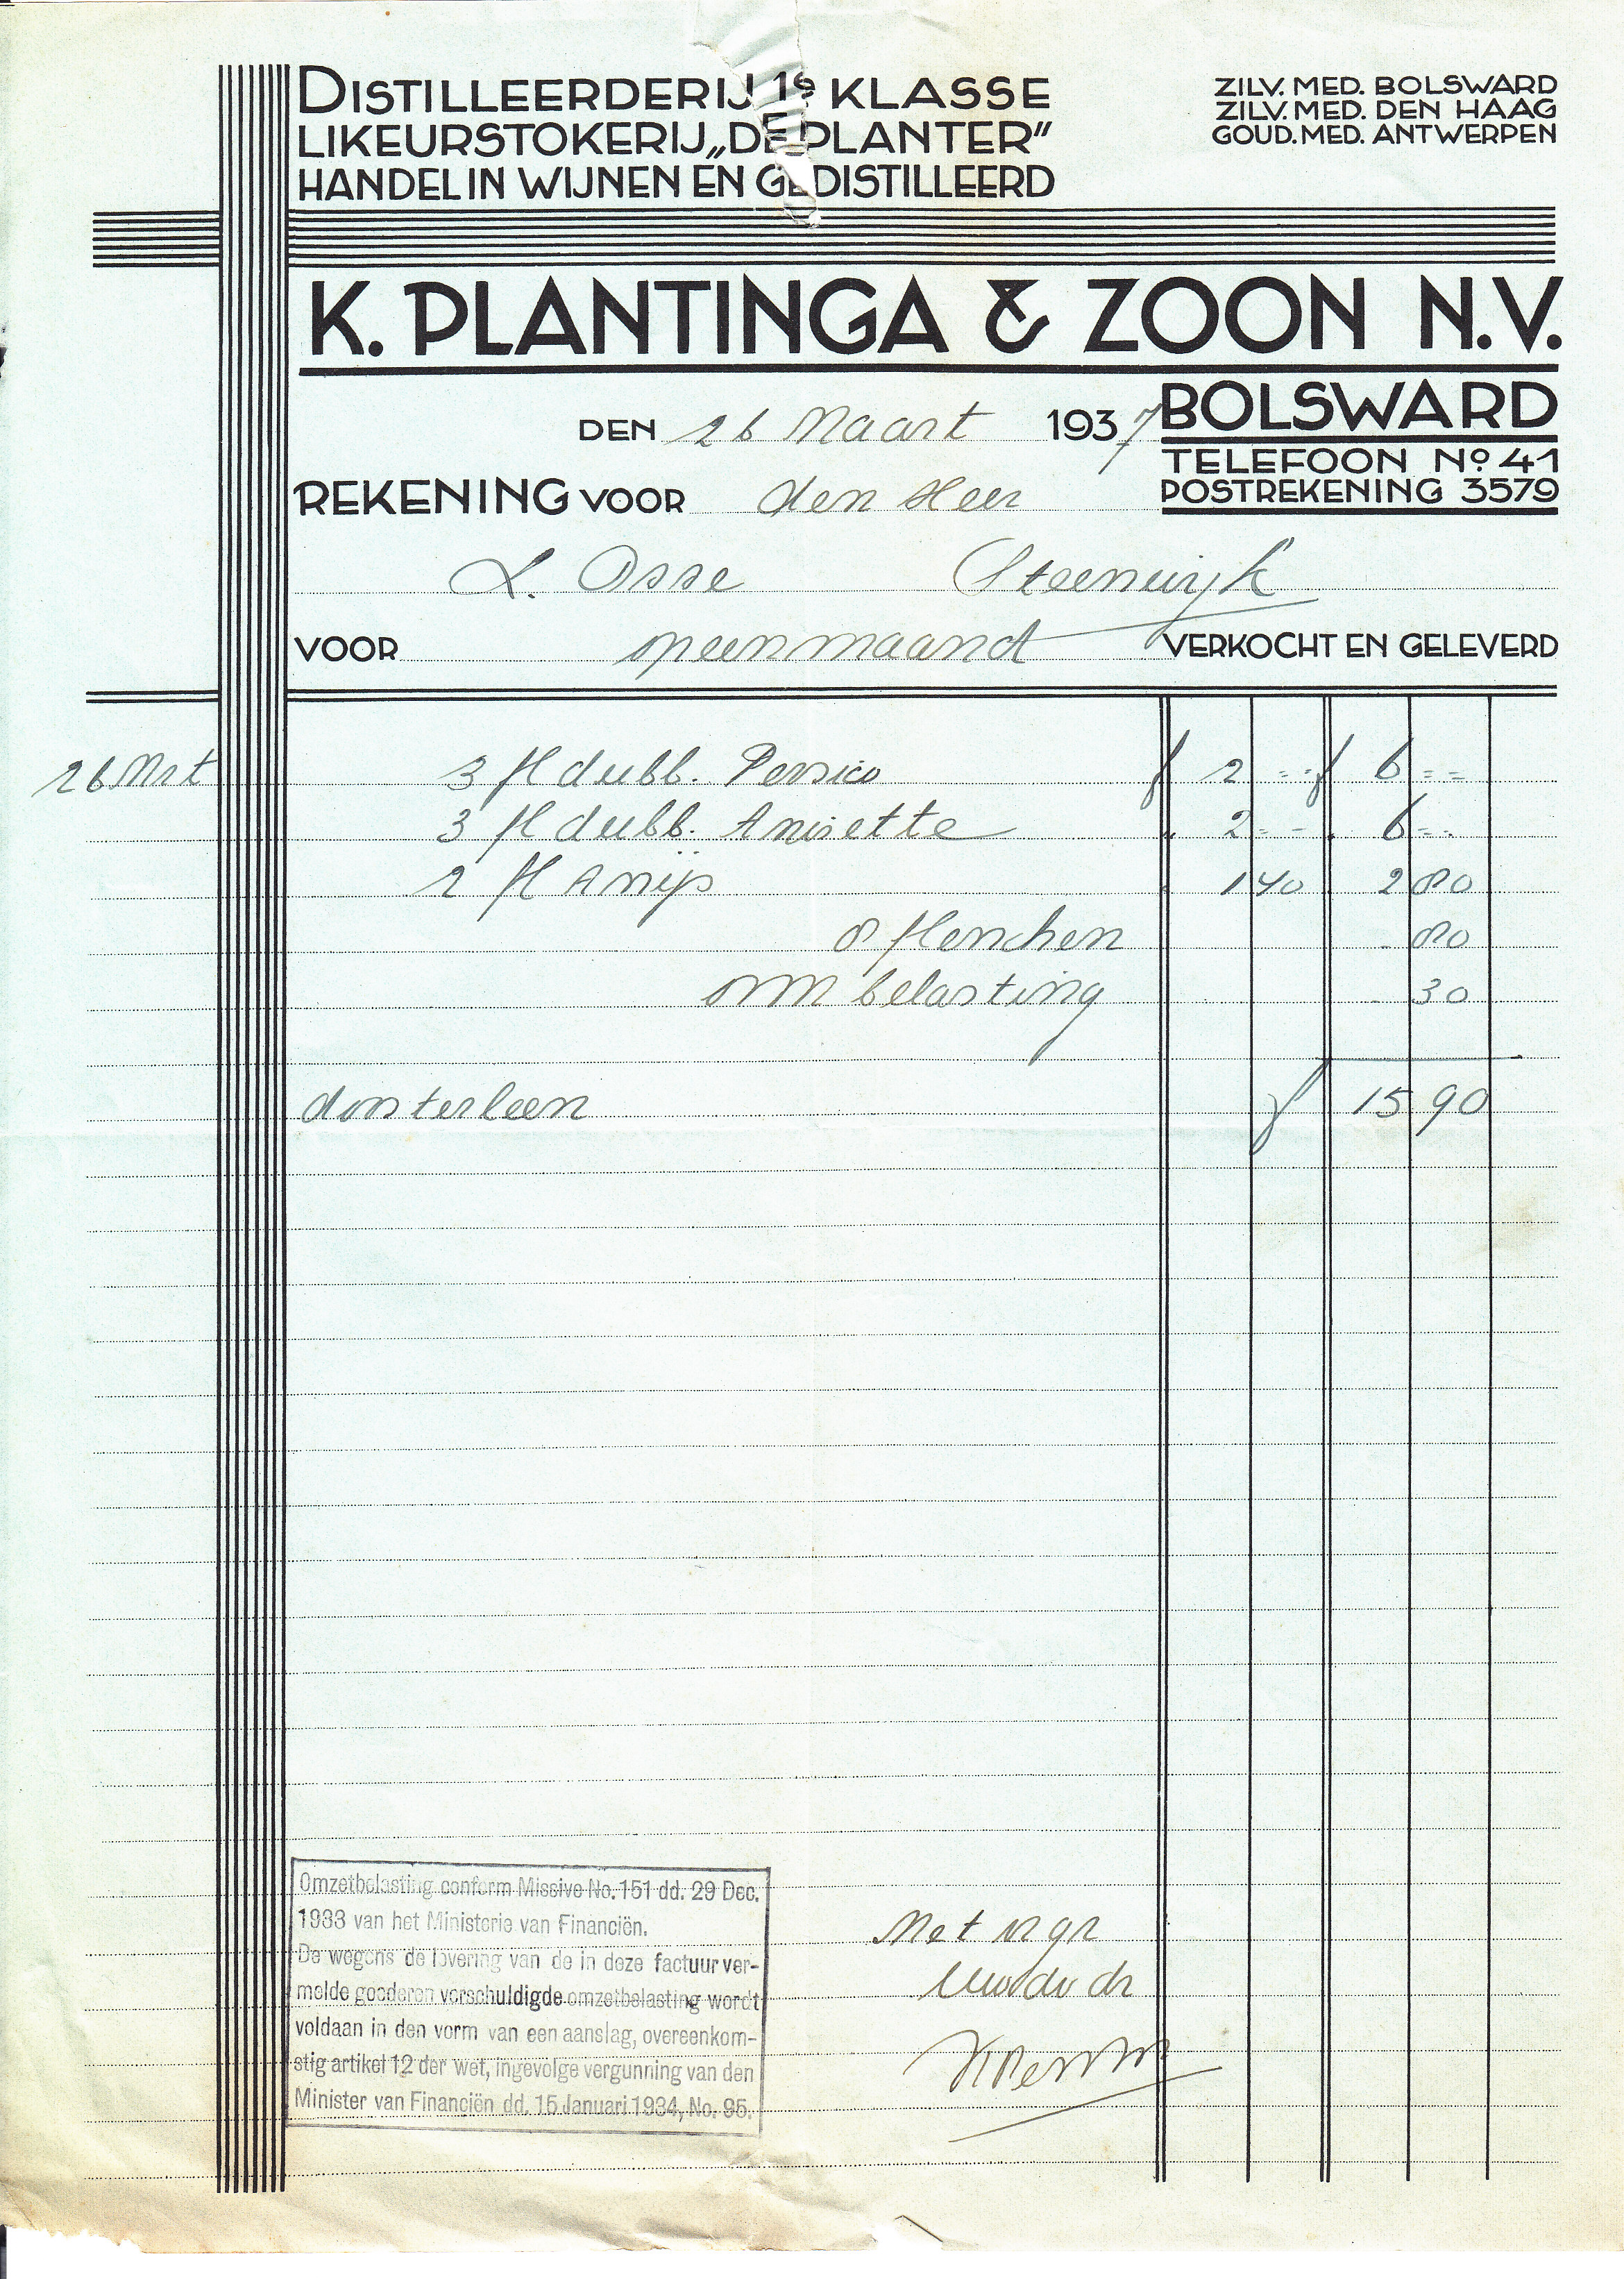 DISTILLEERDERIJ 1e KLASSE
LIKEURSTOKERIJ „DE PLANTER”
HANDEL IN WIJNEN EN GEDISTILLEERD
ZILV. MED. BOLSWARD
ZILV. MED. DEN HAAG
GOUD. MED. ANTWERPEN
K. PLANTINGA & ZOON N.V.
BOLSWARD
TELEFOON No 41
POSTREKENING 3579
DEN 26 Maart 1937
REKENING VOOR den Heer
L. Osse Steenwijk
VOOR VERKOCHT EN GELEVERD
26 Mrt 3 fl dubb. Persico f 2 = = f 6 = =
3 fl dubb. Anisette " 2 = - " 6 = =
2 fl Anijs " 1 40 2 80
8 flesschen - 80
om belasting - 30
f 15 90
Omzetbelasting conform Missive No. 151 dd. 29 Dec.
1933 van het Ministerie van Financiën.
De wegens de levering van de in deze factuur ver-
melde goederen verschuldigde omzetbelasting wordt
voldaan in den vorm van een aanslag, overeenkom-
stig artikel 12 der wet, ingevolge vergunning van den
Minister van Financiën dd. 15 Januari 1934, No. 95.
Met vr gr